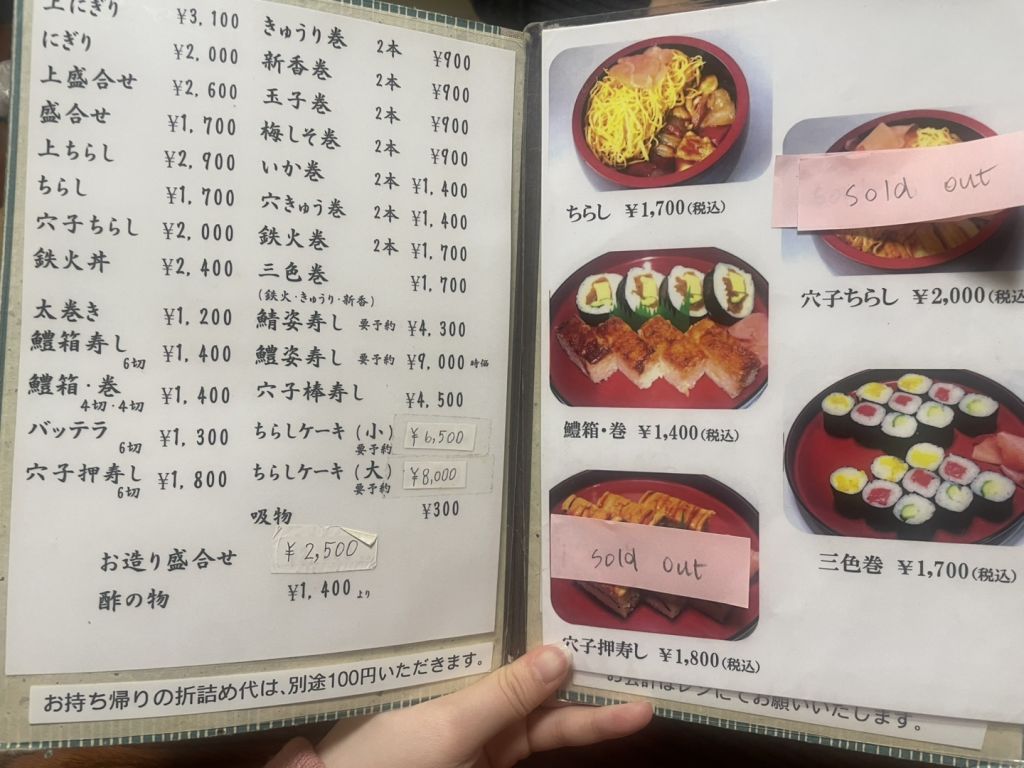 上にぎり ¥3,100
にぎり ¥2,000
上盛合せ ¥2,600
盛合せ ¥1,700
上ちらし ¥2,900
ちらし ¥1,700
穴子ちらし ¥2,000
鉄火丼 ¥2,400
太巻き ¥1,200
鱧箱寿し 6切 ¥1,400
鱧箱・巻 4切・4切 ¥1,400
バッテラ 6切 ¥1,300
穴子押寿し 6切 ¥1,800
きゅうり巻 2本 ¥900
新香巻 2本 ¥900
玉子巻 2本 ¥900
梅しそ巻 2本 ¥900
いか巻 2本 ¥1,400
穴きゅう巻 2本 ¥1,400
鉄火巻 2本 ¥1,700
三色巻 ¥1,700
(鉄火・きゅうり・新香)
鯖姿寿し 要予約 ¥4,300
鱧姿寿し 要予約 ¥9,000 時価
穴子棒寿し ¥4,500
ちらしケーキ (小) 要予約 ¥6,500
ちらしケーキ (大) 要予約 ¥8,000
吸物 ¥300
お造り盛合せ ¥2,500
酢の物 ¥1,400より
お持ち帰りの折詰め代は、別途100円いただきます。
ちらし ¥1,700(税込)
sold out
穴子ちらし ¥2,000(税込
鱧箱・巻 ¥1,400(税込)
sold out
三色巻 ¥1,700(税込)
穴子押寿し ¥1,800(税込)
お会計はレジにてお願いいたします。